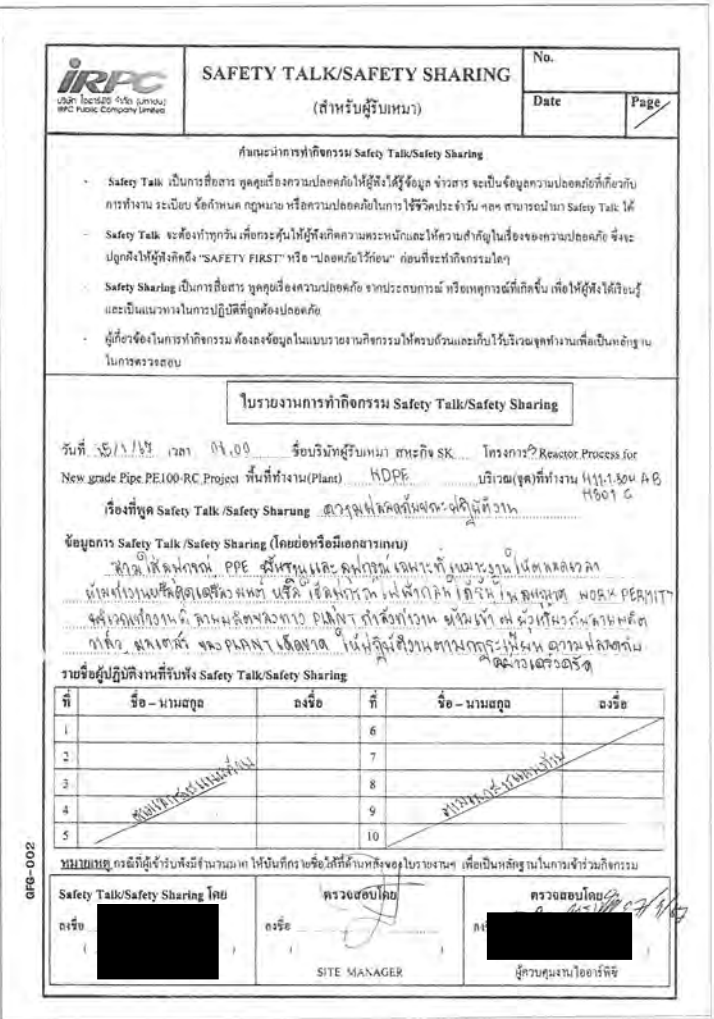 IRPC
บริษัท ไออาร์พีซี จำกัด (มหาชน)
IRPC Public Company Limited
SAFETY TALK/SAFETY SHARING
(สำหรับผู้รับเหมา)
No.
Date
Page
คำแนะนำการทำกิจกรรม Safety Talk/Safety Sharing
- Safety Talk เป็นการสื่อสาร พูดคุยเรื่องความปลอดภัยให้ผู้ฟังได้รู้ข้อมูล ข่าวสาร จะเป็นข้อมูลความปลอดภัยที่เกี่ยวกับ
การทำงาน ระเบียบ ข้อกำหนด กฎหมาย หรือความปลอดภัยในการใช้ชีวิตประจำวัน ฯลฯ สามารถนำมา Safety Talk ได้
- Safety Talk จะต้องทำทุกวัน เพื่อกระตุ้นให้ผู้ฟังเกิดความตระหนักและให้ความสำคัญในเรื่องของความปลอดภัย ซึ่งจะ
ปลูกฝังให้ผู้ฟังคิดถึง "SAFETY FIRST" หรือ "ปลอดภัยไว้ก่อน" ก่อนที่จะทำกิจกรรมใดๆ
- Safety Sharing เป็นการสื่อสาร พูดคุยเรื่องความปลอดภัย จากประสบการณ์ หรือเหตุการณ์ที่เกิดขึ้น เพื่อให้ผู้ฟังได้เรียนรู้
และเป็นแนวทางในการปฏิบัติที่ถูกต้องปลอดภัย
- ผู้เกี่ยวข้องในการทำกิจกรรม ต้องลงข้อมูลในแบบรายงานกิจกรรมให้ครบถ้วนและเก็บไว้บริเวณจุดทำงานเพื่อเป็นหลักฐาน
ในการตรวจสอบ
ใบรายงานการทำกิจกรรม Safety Talk/Safety Sharing
วันที่ เวลา ชื่อบริษัทผู้รับเหมา สหะกิจ SK โครงการ? Reactor Process for
New grade Pipe PE100-RC Project พื้นที่ทำงาน(Plant) HDPE บริเวณ(จุด)ที่ทำงาน
เรื่องที่พูด Safety Talk /Safety Sharung ความปลอดภัยขณะปฏิบัติงาน
ข้อมูลการ Safety Talk /Safety Sharing (โดยย่อหรือมีเอกสารแนบ)
สวมใส่อุปกรณ์ PPE พื้นฐานและอุปกรณ์เฉพาะที่เหมาะงานให้ตลอดเวลา
WORK PERMIT
PLANT กำลังทำงาน ห้ามเข้า
ของ PLANT เด็ดขาด ให้ปฏิบัติงานตามกฎระเบียบ ความปลอดภัย
อย่างเคร่งครัด
รายชื่อผู้ปฏิบัติงานที่รับฟัง Safety Talk/Safety Sharing
ที่ ชื่อ – นามสกุล ลงชื่อ ที่ ชื่อ – นามสกุล ลงชื่อ
1 6
2 7
3 8
4 9
5 10
ตามเอกสารแนบท้าย
หมายเหตุ กรณีที่ผู้เข้ารับฟังมีจำนวนมาก ให้บันทึกรายชื่อไว้ที่ด้านหลังของใบรายงานฯ เพื่อเป็นหลักฐานในการเข้าร่วมกิจกรรม
GFG-002
Safety Talk/Safety Sharing โดย ตรวจสอบโดย ตรวจสอบโดย
ลงชื่อ ลงชื่อ
SITE MANAGER ผู้ควบคุมงานไออาร์พีซี